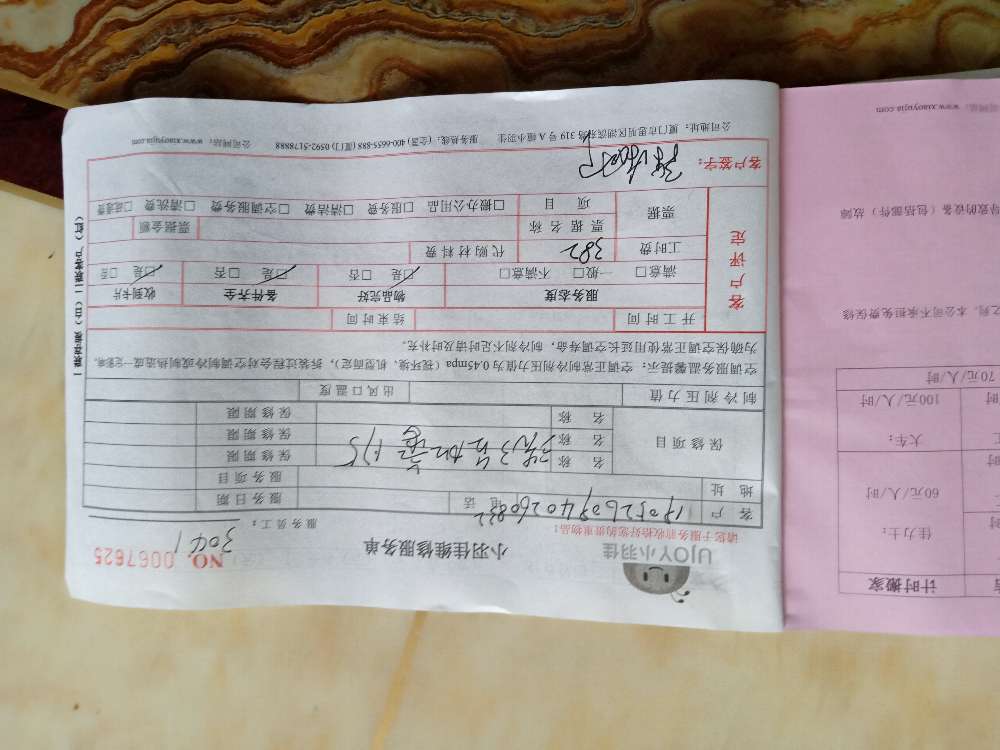 UJOY小羽佳
小羽佳维修服务单
NO. 0067625
请您于服务前收拾好您的贵重物品:
服务员工: 3041
客户 1705260940260832 电话 服务日期
地址 服务项目
保修项目
名称 洗3县加氟 175 保修期限
名称 保修期限
名称 保修期限
制冷剂压力值 出风口温度
空调服务温馨提示: 空调正常制冷剂压力值为0.45mpa(视环境、机型而定),拆装过程会对空调制冷或制热造成一定影响,
为确保空调正常使用延长空调寿命,制冷剂不足时请及时补充。
客户评定
开工时间 结束时间
服务态度 物品完好 备件齐全 收到卡片
满意□ 一般□ 不满意□ □是 □否 □是 □否 □是 □否
工时费 382 代购材料费
票据 票据名称 票据金额
项目 □搬办公用品 □服务费 □清洁费 □空调服务费 □清洗费 □疏通费
客户签字:
公司地址: 厦门市思明区湖滨东路319号A幢小羽佳 服务热线: (全国) 400-6655-888 (厦门) 0592-5178888 公司网站: www.xiaoyujia.com
一联存根(白) 二联客户(红)
www.xiaoyujia.com
计时搬家
佳力士:
60元/人/时
大车:
100元/人/时
70元/人/时
之列,本公司不承担免费保修
导致的设备(包括部件)故障